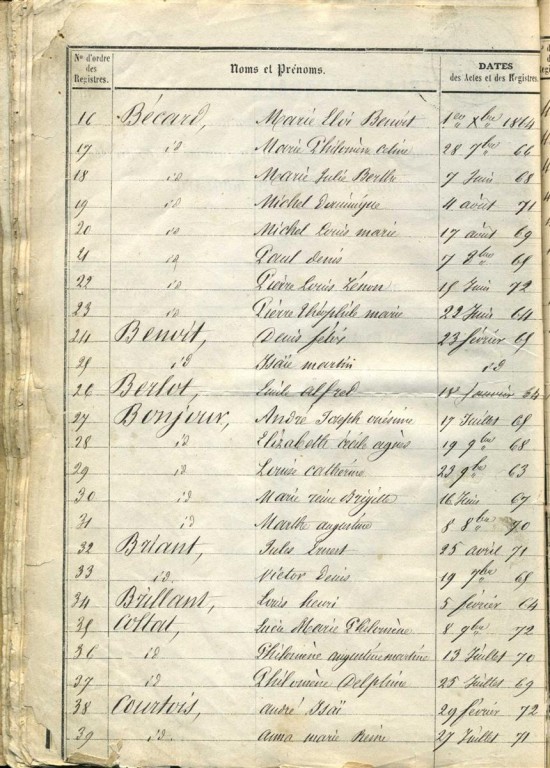 Nos d'ordre des Registres. Noms et Prénoms. DATES des Actes et des Registres.
16 Bécard, Marie Eloi Benoit 1er Xbre 1864
17 id Marie Philomène 28 7bre 66
18 id Marie Julie Berthe 7 Juin 68
19 id Michel Dominique 4 août 71
20 id Michel Louis Marie 17 août 69
21 id Paul Denis 7
22 id Pierre Louis Zénon Juin 72
23 id Pierre Théophile Marie 22 Juin 64
24 Benoit, Denis Félix 23 février
25 id Isaïe Martin id
26 Berlot, Emile Alfred Janvier 64
27 Bonjour, André Joseph 17 Juillet
28 id Elizabeth Cécile Agnès 19 9bre 68
29 id Louise Catherine 23 9bre 63
30 id Marie Reine Brigitte 16 Juin 67
31 id Marthe Augustine 8 8bre 70
32 Briant, Jules Ernest 25 avril 71
33 id. Victor Denis 19 7bre
34 Brillant, Louis Henri 5 février 64
35 Collat, Lucie Marie Philomène 8 72
36 id Philomène Augustine Martine 13 Juillet 70
37 id Philomène Delphine 25 Juillet 69
38 Courtois, André Isaï 29 février 72
39 id. Anna Marie Reine 27 Juillet 71